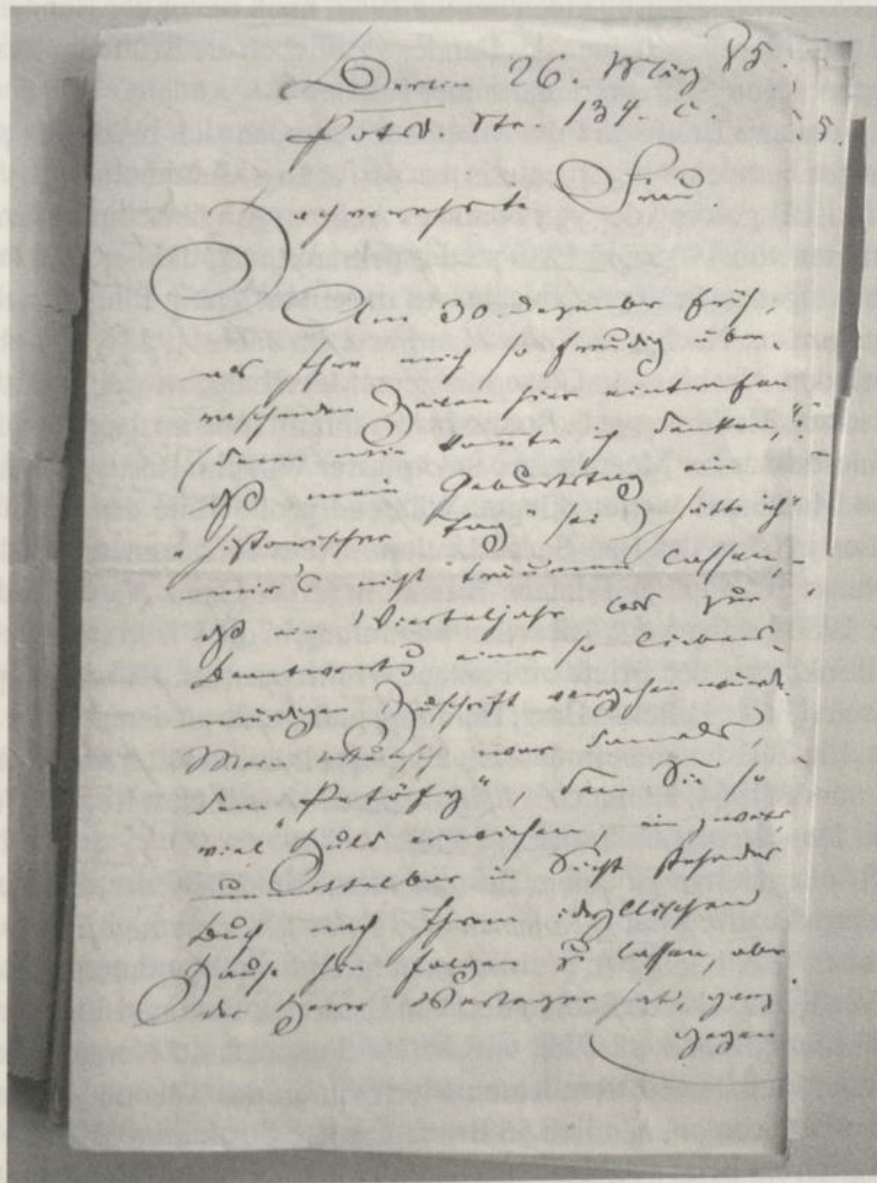 Berlin 26. März 85.
Potsd. Str. 134. c.
Hochverehrte Frau.
Am 30. Dezember früh,
als Ihre mich so freudig über-
raschenden Zeilen hier eintrafen
(denn wie konnte ich denken,
daß mein Geburtstag ein
"historischer Tag" sei) hätte ich
mir's nicht träumen lassen,
daß ein Vierteljahr bis zur
Beantwortg einer so liebens-
würdigen Zuschrift vergehen würde.
Mein Wunsch war damals,
dem "Petöfy", dem Sie so
viel Huld erwiesen, ein zweites
unmittelbar in Sicht stehendes
Buch nach Ihrem idyllischen
Hause hin folgen zu lassen, aber
der Herr Verleger hat, ganz
gegen